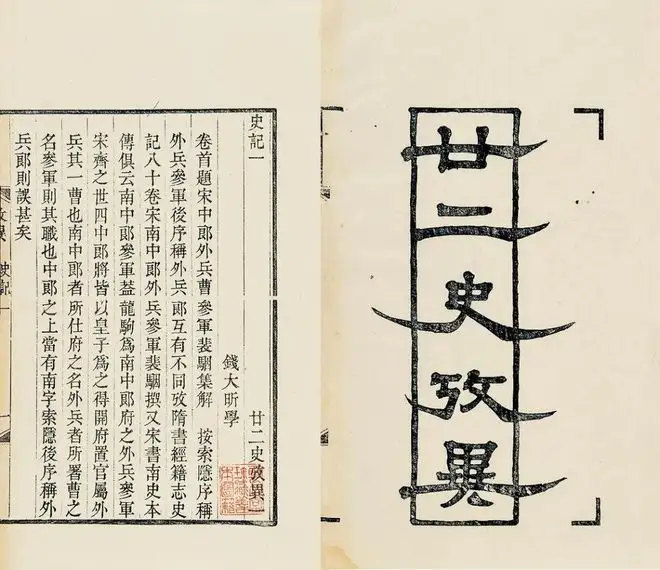 廿二史攷異
史記一 廿二史攷異一
錢大昕學
卷首題宋中郞外兵曹參軍裴駰集解 按索隱序稱
外兵參軍後序稱外兵郞互有不同攷隋書經籍志史
記八十卷宋南中郞外兵參軍裴駰撰又宋書南史本
傳俱云南中郞參軍蓋龍駒爲南中郞府之外兵參軍
宋齊之世四中郞將皆以皇子爲之得開府置官屬外
兵其一曹也南中郞者所仕府之名外兵者所署曹之
名參軍則其職也中郞之上當有南字索隱後序稱外
兵郞則誤甚矣
攷異 史記一